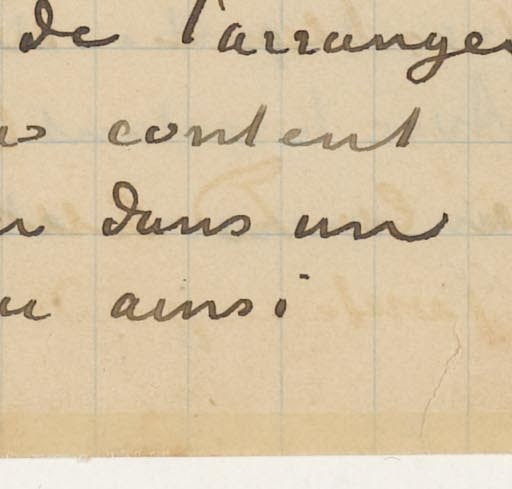 de l'arranger
content
dans un
ainsi